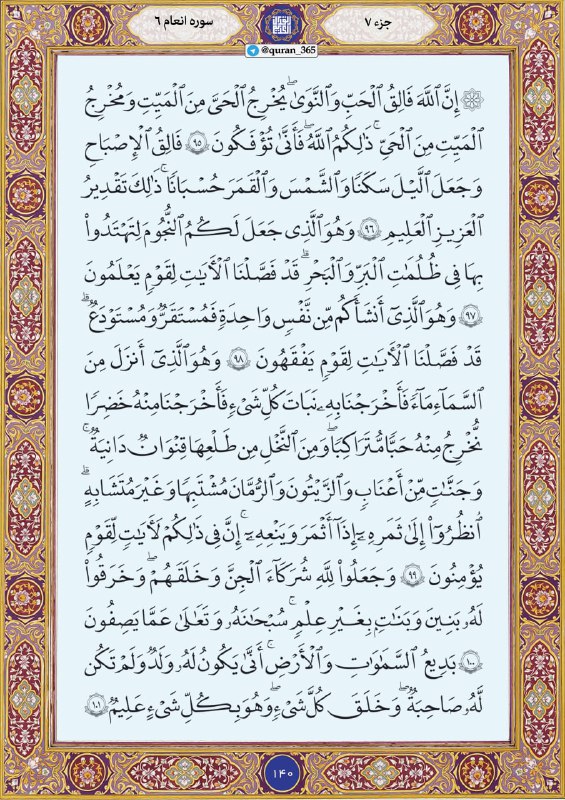 جزء ۷
سوره انعام ۶
@quran_365
إِنَّ ٱللَّهَ فَالِقُ ٱلۡحَبِّ وَٱلنَّوَىٰۖ يُخۡرِجُ ٱلۡحَيَّ مِنَ ٱلۡمَيِّتِ وَمُخۡرِجُ
ٱلۡمَيِّتِ مِنَ ٱلۡحَيِّۚ ذَٰلِكُمُ ٱللَّهُۖ فَأَنَّىٰ تُؤۡفَكُونَ ٩٥ فَالِقُ ٱلۡإِصۡبَاحِ
وَجَعَلَ ٱلَّيۡلَ سَكَنٗا وَٱلشَّمۡسَ وَٱلۡقَمَرَ حُسۡبَانٗاۚ ذَٰلِكَ تَقۡدِيرُ
ٱلۡعَزِيزِ ٱلۡعَلِيمِ ٩٦ وَهُوَ ٱلَّذِي جَعَلَ لَكُمُ ٱلنُّجُومَ لِتَهۡتَدُواْ
بِهَا فِي ظُلُمَٰتِ ٱلۡبَرِّ وَٱلۡبَحۡرِۗ قَدۡ فَصَّلۡنَا ٱلۡأٓيَٰتِ لِقَوۡمٖ يَعۡلَمُونَ
٩٧ وَهُوَ ٱلَّذِيٓ أَنشَأَكُم مِّن نَّفۡسٖ وَٰحِدَةٖ فَمُسۡتَقَرّٞ وَمُسۡتَوۡدَعٞۗ
قَدۡ فَصَّلۡنَا ٱلۡأٓيَٰتِ لِقَوۡمٖ يَفۡقَهُونَ ٩٨ وَهُوَ ٱلَّذِيٓ أَنزَلَ مِنَ
ٱلسَّمَآءِ مَآءٗ فَأَخۡرَجۡنَا بِهِۦ نَبَاتَ كُلِّ شَيۡءٖ فَأَخۡرَجۡنَا مِنۡهُ خَضِرٗا
نُّخۡرِجُ مِنۡهُ حَبّٗا مُّتَرَاكِبٗا وَمِنَ ٱلنَّخۡلِ مِن طَلۡعِهَا قِنۡوَانٞ دَانِيَةٞ
وَجَنَّٰتٖ مِّنۡ أَعۡنَابٖ وَٱلزَّيۡتُونَ وَٱلرُّمَّانَ مُشۡتَبِهٗا وَغَيۡرَ مُتَشَٰبِهٍۗ
ٱنظُرُوٓاْ إِلَىٰ ثَمَرِهِۦٓ إِذَآ أَثۡمَرَ وَيَنۡعِهِۦٓۚ إِنَّ فِي ذَٰلِكُمۡ لَأٓيَٰتٖ لِّقَوۡمٖ
يُؤۡمِنُونَ ٩٩ وَجَعَلُواْ لِلَّهِ شُرَكَآءَ ٱلۡجِنَّ وَخَلَقَهُمۡۖ وَخَرَقُواْ
لَهُۥ بَنِينَ وَبَنَٰتِۭ بِغَيۡرِ عِلۡمٖۚ سُبۡحَٰنَهُۥ وَتَعَٰلَىٰ عَمَّا يَصِفُونَ
١٠٠ بَدِيعُ ٱلسَّمَٰوَٰتِ وَٱلۡأَرۡضِۖ أَنَّىٰ يَكُونُ لَهُۥ وَلَدٞ وَلَمۡ تَكُن
لَّهُۥ صَٰحِبَةٞۖ وَخَلَقَ كُلَّ شَيۡءٖۖ وَهُوَ بِكُلِّ شَيۡءٍ عَلِيمٞ ١٠١
۱۴۰